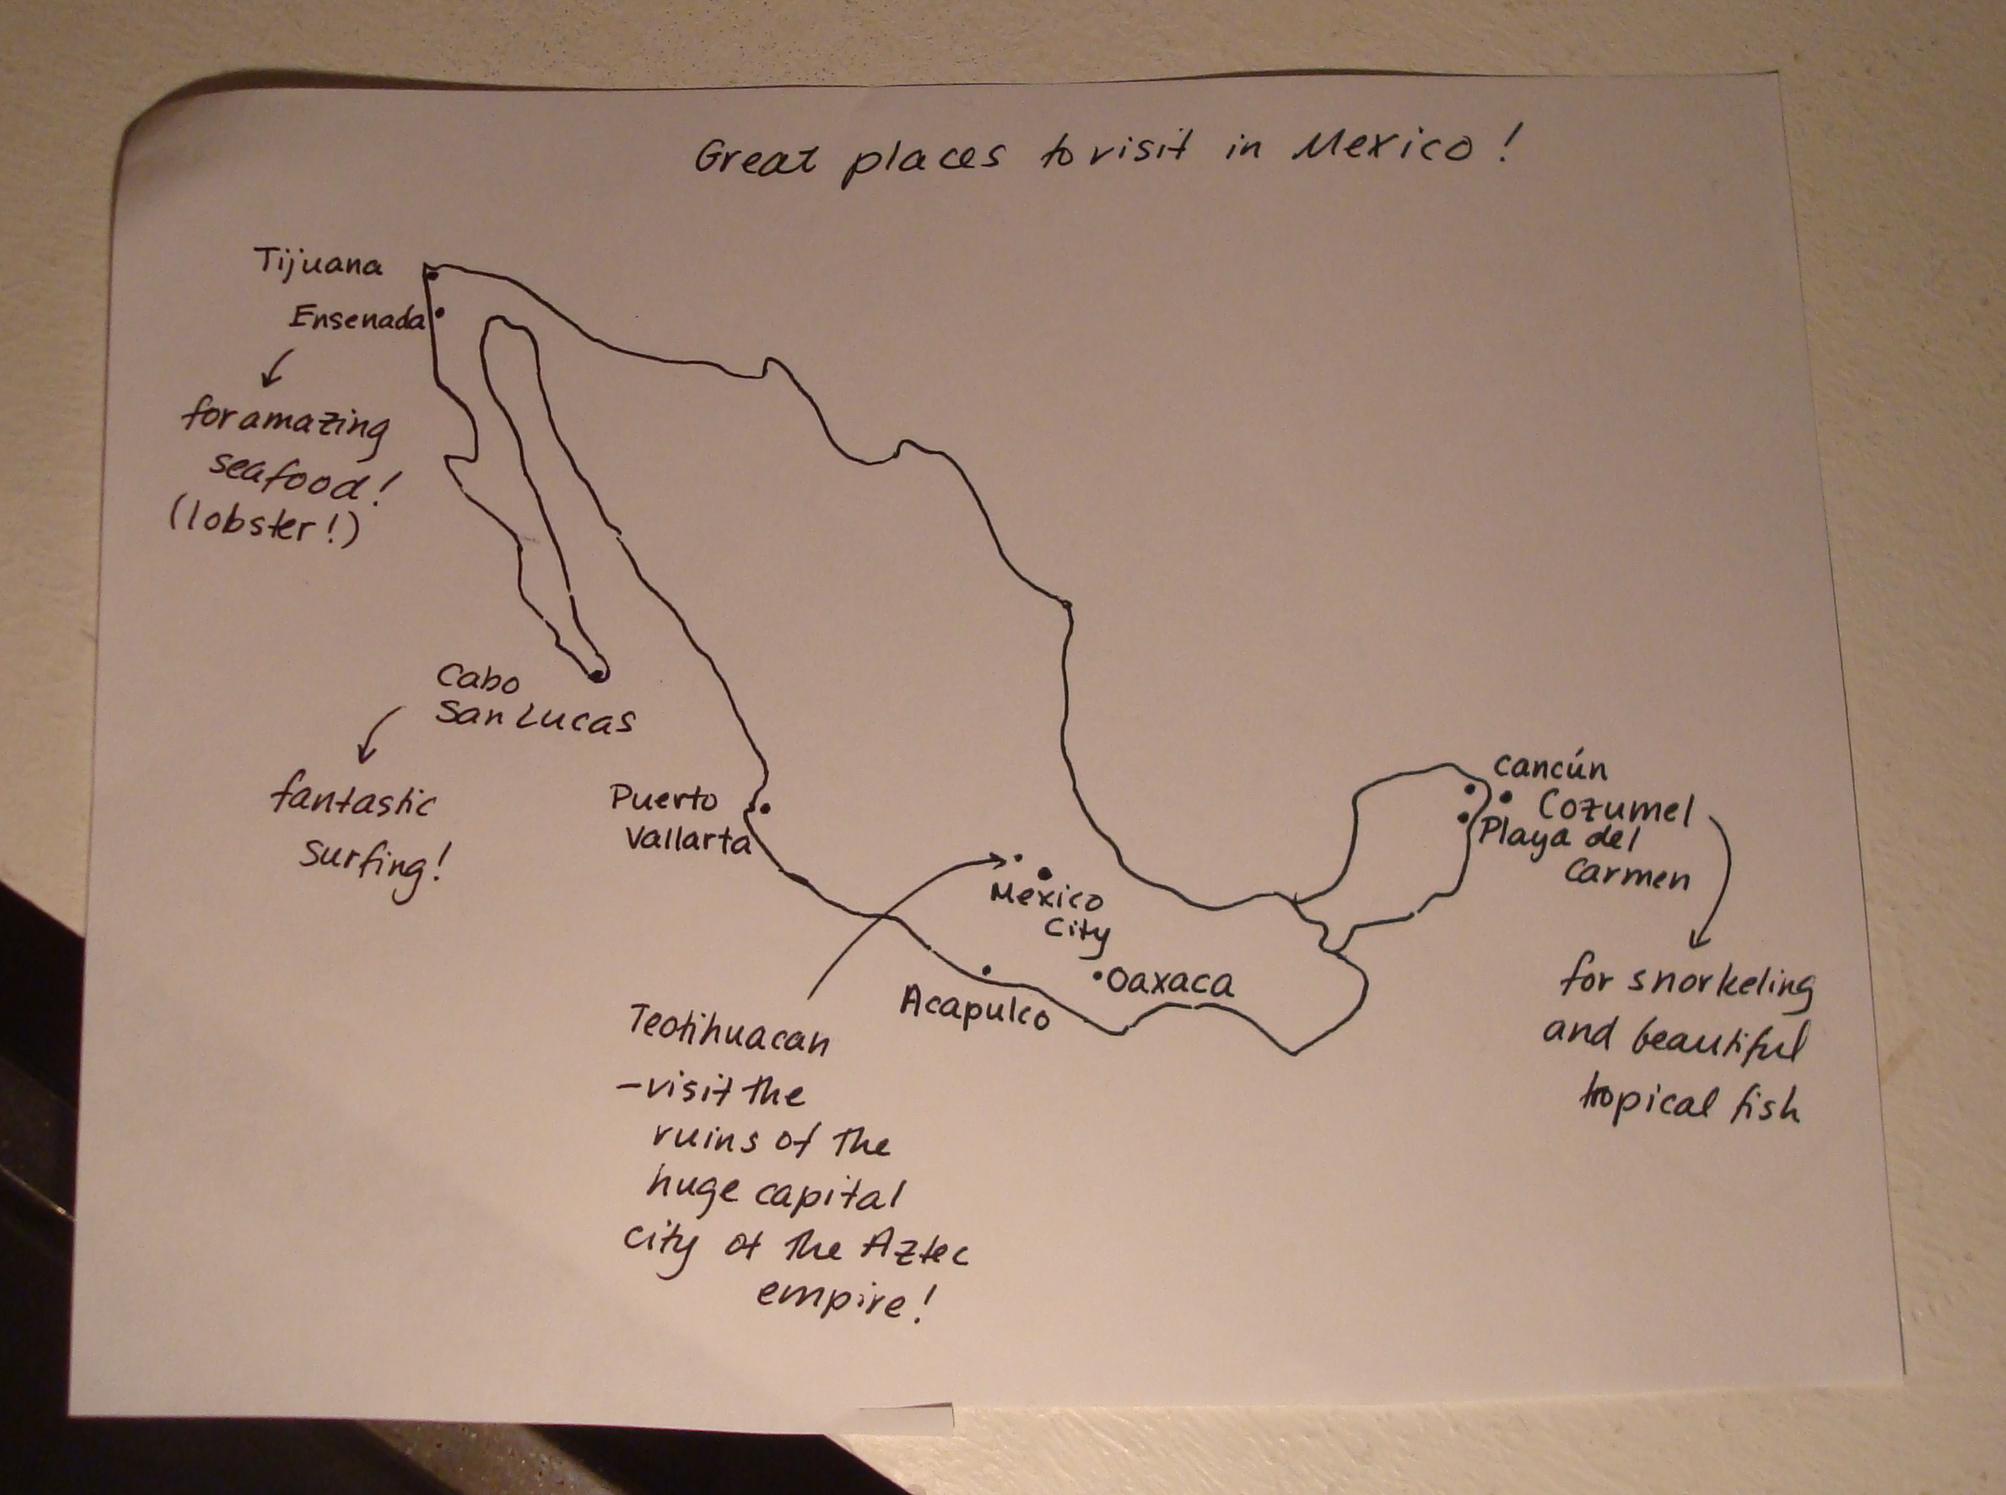 Great places to visit in Mexico!
Tijuana
Ensenada
for amazing
seafood!
(lobster!)
Cabo
San Lucas
fantastic
surfing!
Puerto
Vallarta
Mexico
City
Oaxaca
Acapulco
Teotihuacan
-visit the
ruins of the
huge capital
city of the Aztec
empire!
Cancún
Cozumel
Playa del
Carmen
for snorkeling
and beautiful
tropical fish